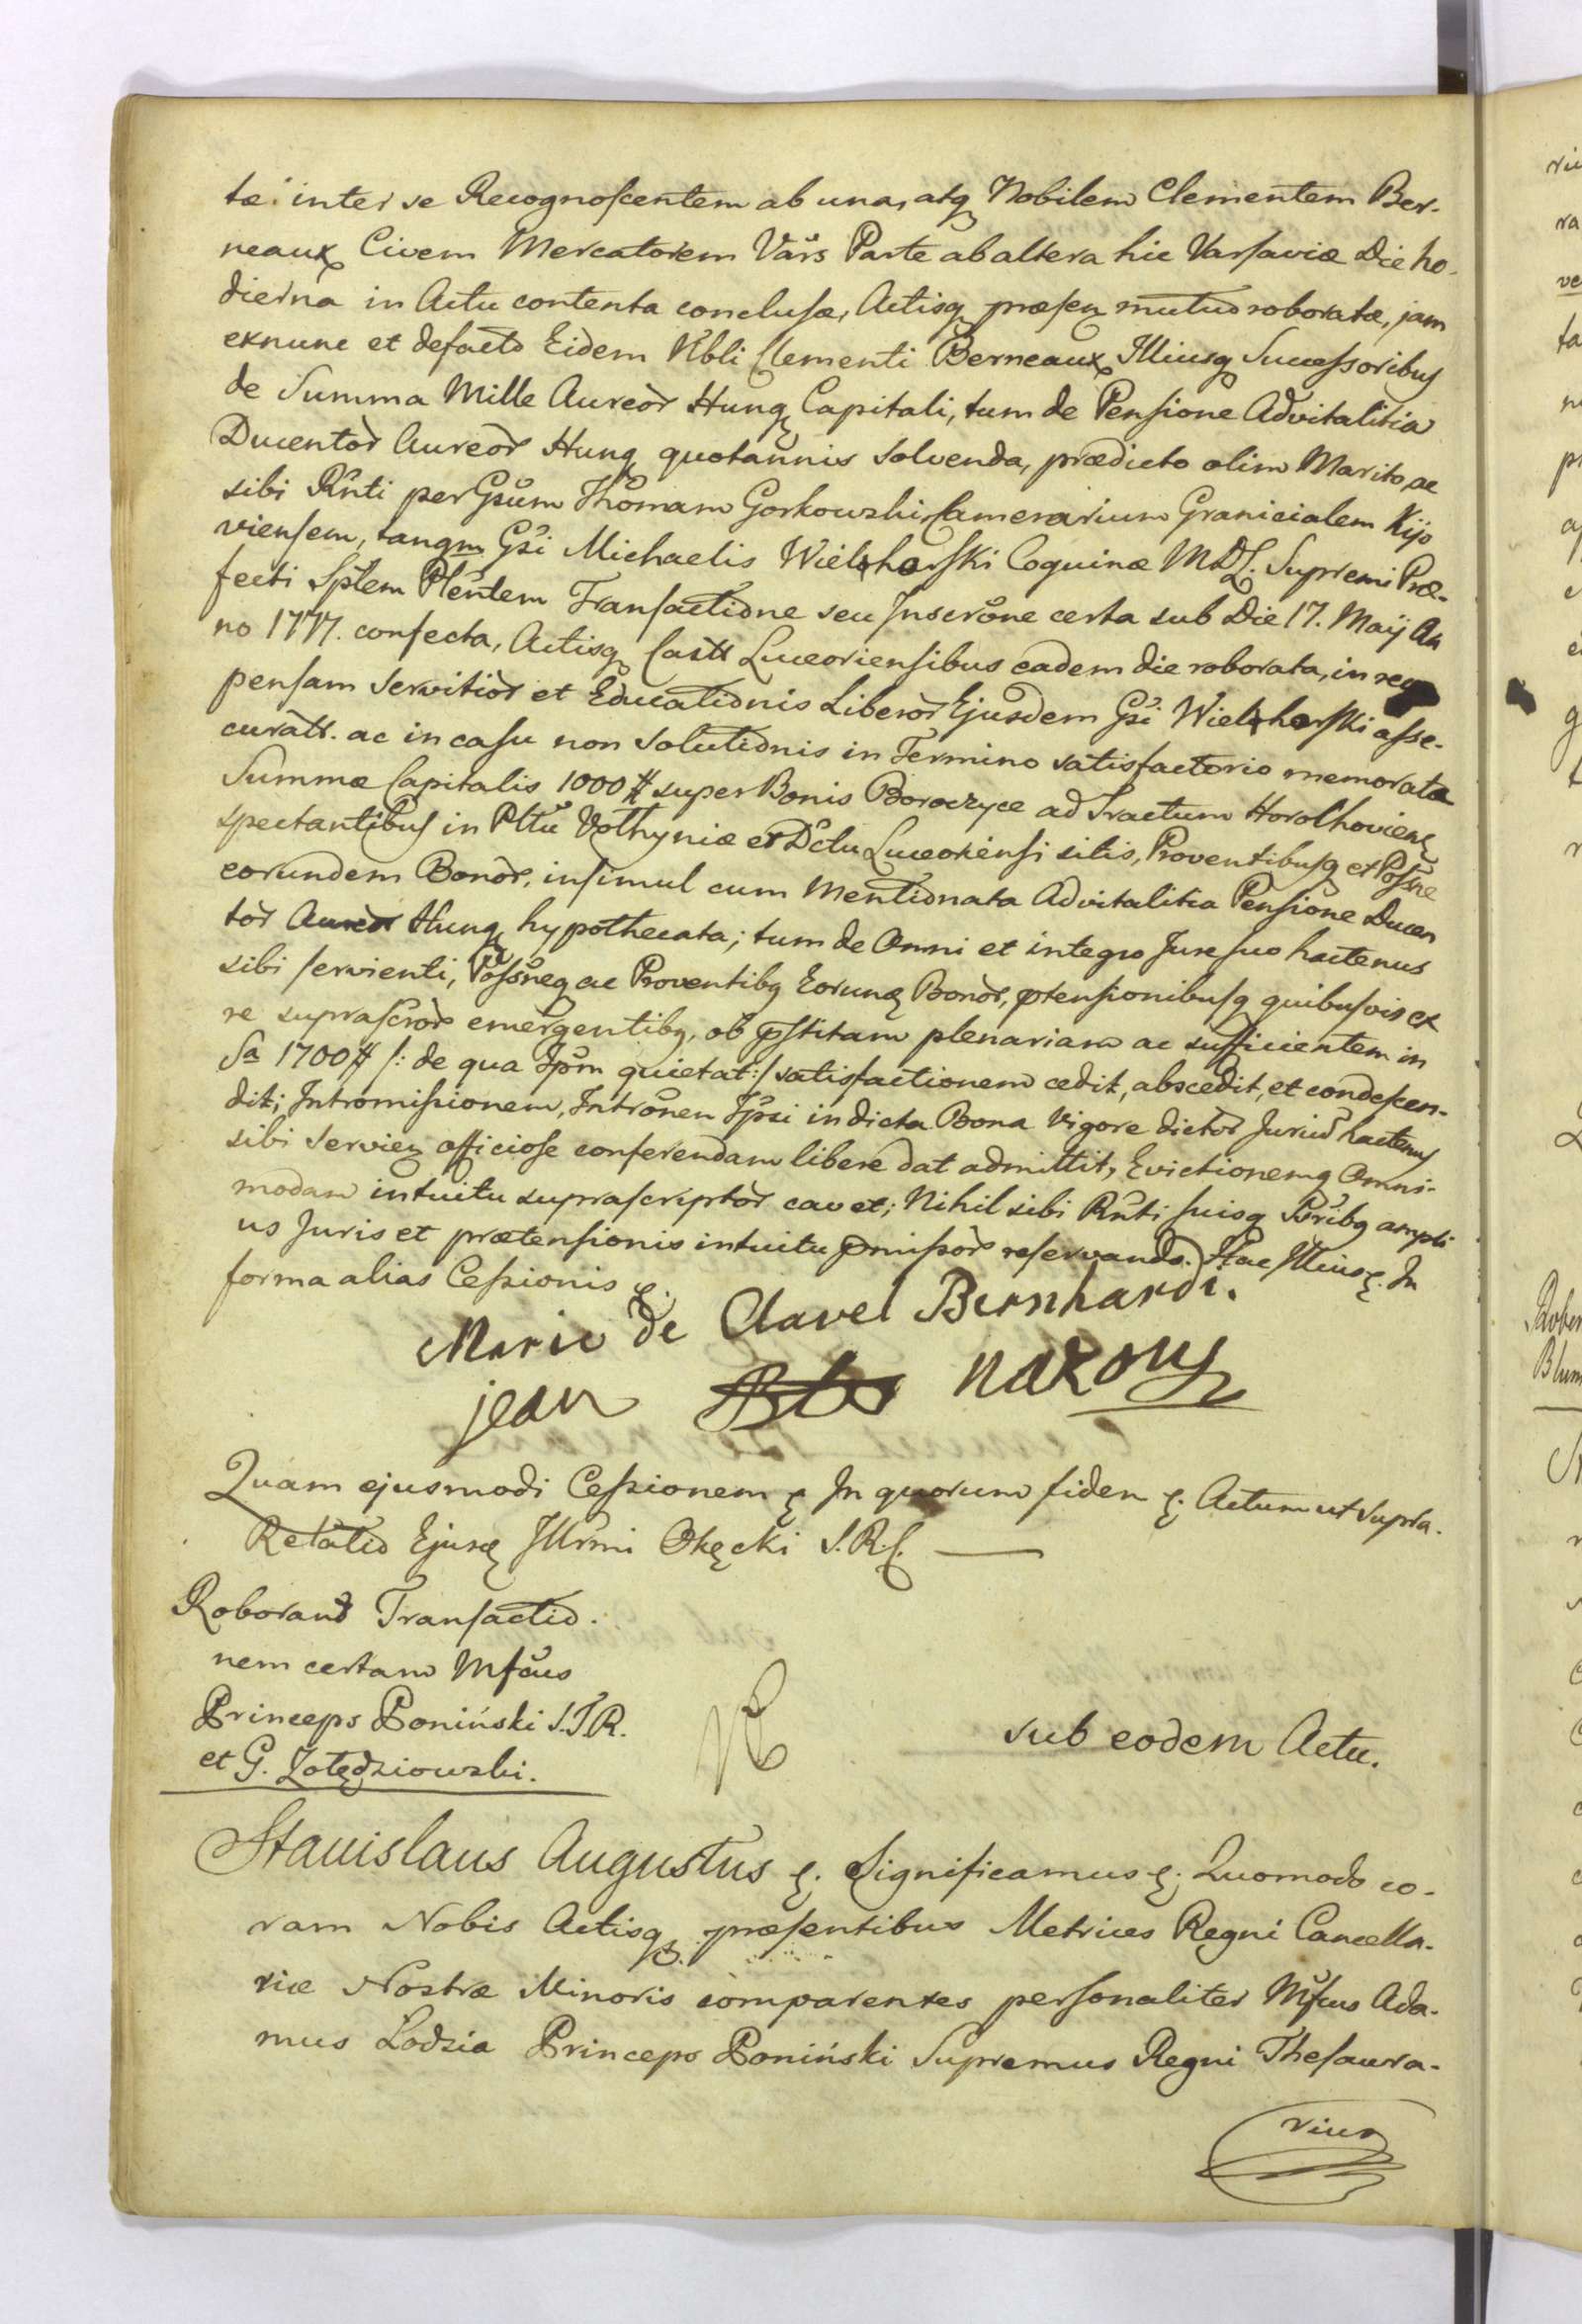 tæ: inter se Recognoscentem ab una, atq Nobilem Clementem Ber-
neaux Civem Mercatorem Vars Parte ab altera hic Varsaviæ Die ho-
dierna in Actu contenta conclusæ, Actisq præsen mutuo roboratæ, jam
exnunc et defacto Eidem Nbli Clementi Berneaux Illiusq Successoribus
de Summa Mille Aureor Hung Capitali, tum de Pensione Advitalitia
Ducentor Aureor Hung quotannis solvenda, prædicto olim Marito, ac
sibi Rnti per Gsum Thomam Gorkowski Camerarium Granicialem Kijo
viensem, tanqm Gsi Michaelis Wielhorski Coquinæ M.D.L. Supremi Præ-
fecti Sptem Plentem Transactione seu Inscrone certa sub Die 17. Maij An
no 1777. confecta, Actisq Castr Luceoriensibus eadem die roborata, in re
pensam servitior et Educationis Liberor Ejusdem Gsi Wielhorski asse-
curatt. ac in casu non solutionis in Termino satisfactorio memoratæ
Summæ Capitalis 1000 # super Bonis Boroczyce ad Tractum Horolhoviens
spectantibus in Pttu Volhyniæ et Dctu Luceoriensi sitis, Proventibusq et Possne
eorundem Bonor, insimul cum mentionata Advitalitia Pensione Ducen
tor Aureor Hung hypothecata; tum de Omni et integro Jure suo hactenus
sibi servienti, Possneq ac Proventibq Eorund Bonor, ptensionibusq quibusvis ex
re suprascror emergentibq, ob pstitam plenariam ac sufficientem in
Sa 1700 # /: de qua Ipsm quietat :/ satisfactionem cedit, abscedit, et condescen-
dit; Intromissionem, Intronen Ipsi in dicta Bona vigore dictor Jurium hactenus
sibi servien officiose conferendam libere dat admittit, Evictionemq Omni-
modam intuitu suprascriptor cavet; Nihil sibi Rnti suisq Ssribq ampli
us Juris et prætensionis intuitu pmissor reservando. Hac Illius &. In
forma alias Cessionis &.
Marie de Clavel Bernhardi.
jean nazony
Quam ejusmodi Cessionem & In quorum fidem &. Actum ut supra.
Relatio Ejusd Illrmi Okęcki S.R.C.
Roborand Transactio-
nem certam Mfcus
Princeps Poniński S.T.R.
et G. Żołędziowski.
sub eodem Actu.
Stanislaus Augustus &. Significamus &. Quomodo co-
ram Nobis Actisq præsentibus Metrices Regni Cancella-
riæ Nostræ Minoris comparentes personaliter Mfcus Ada-
mus Lodzia Princeps Poniński Supremus Regni Thesaura-
rius